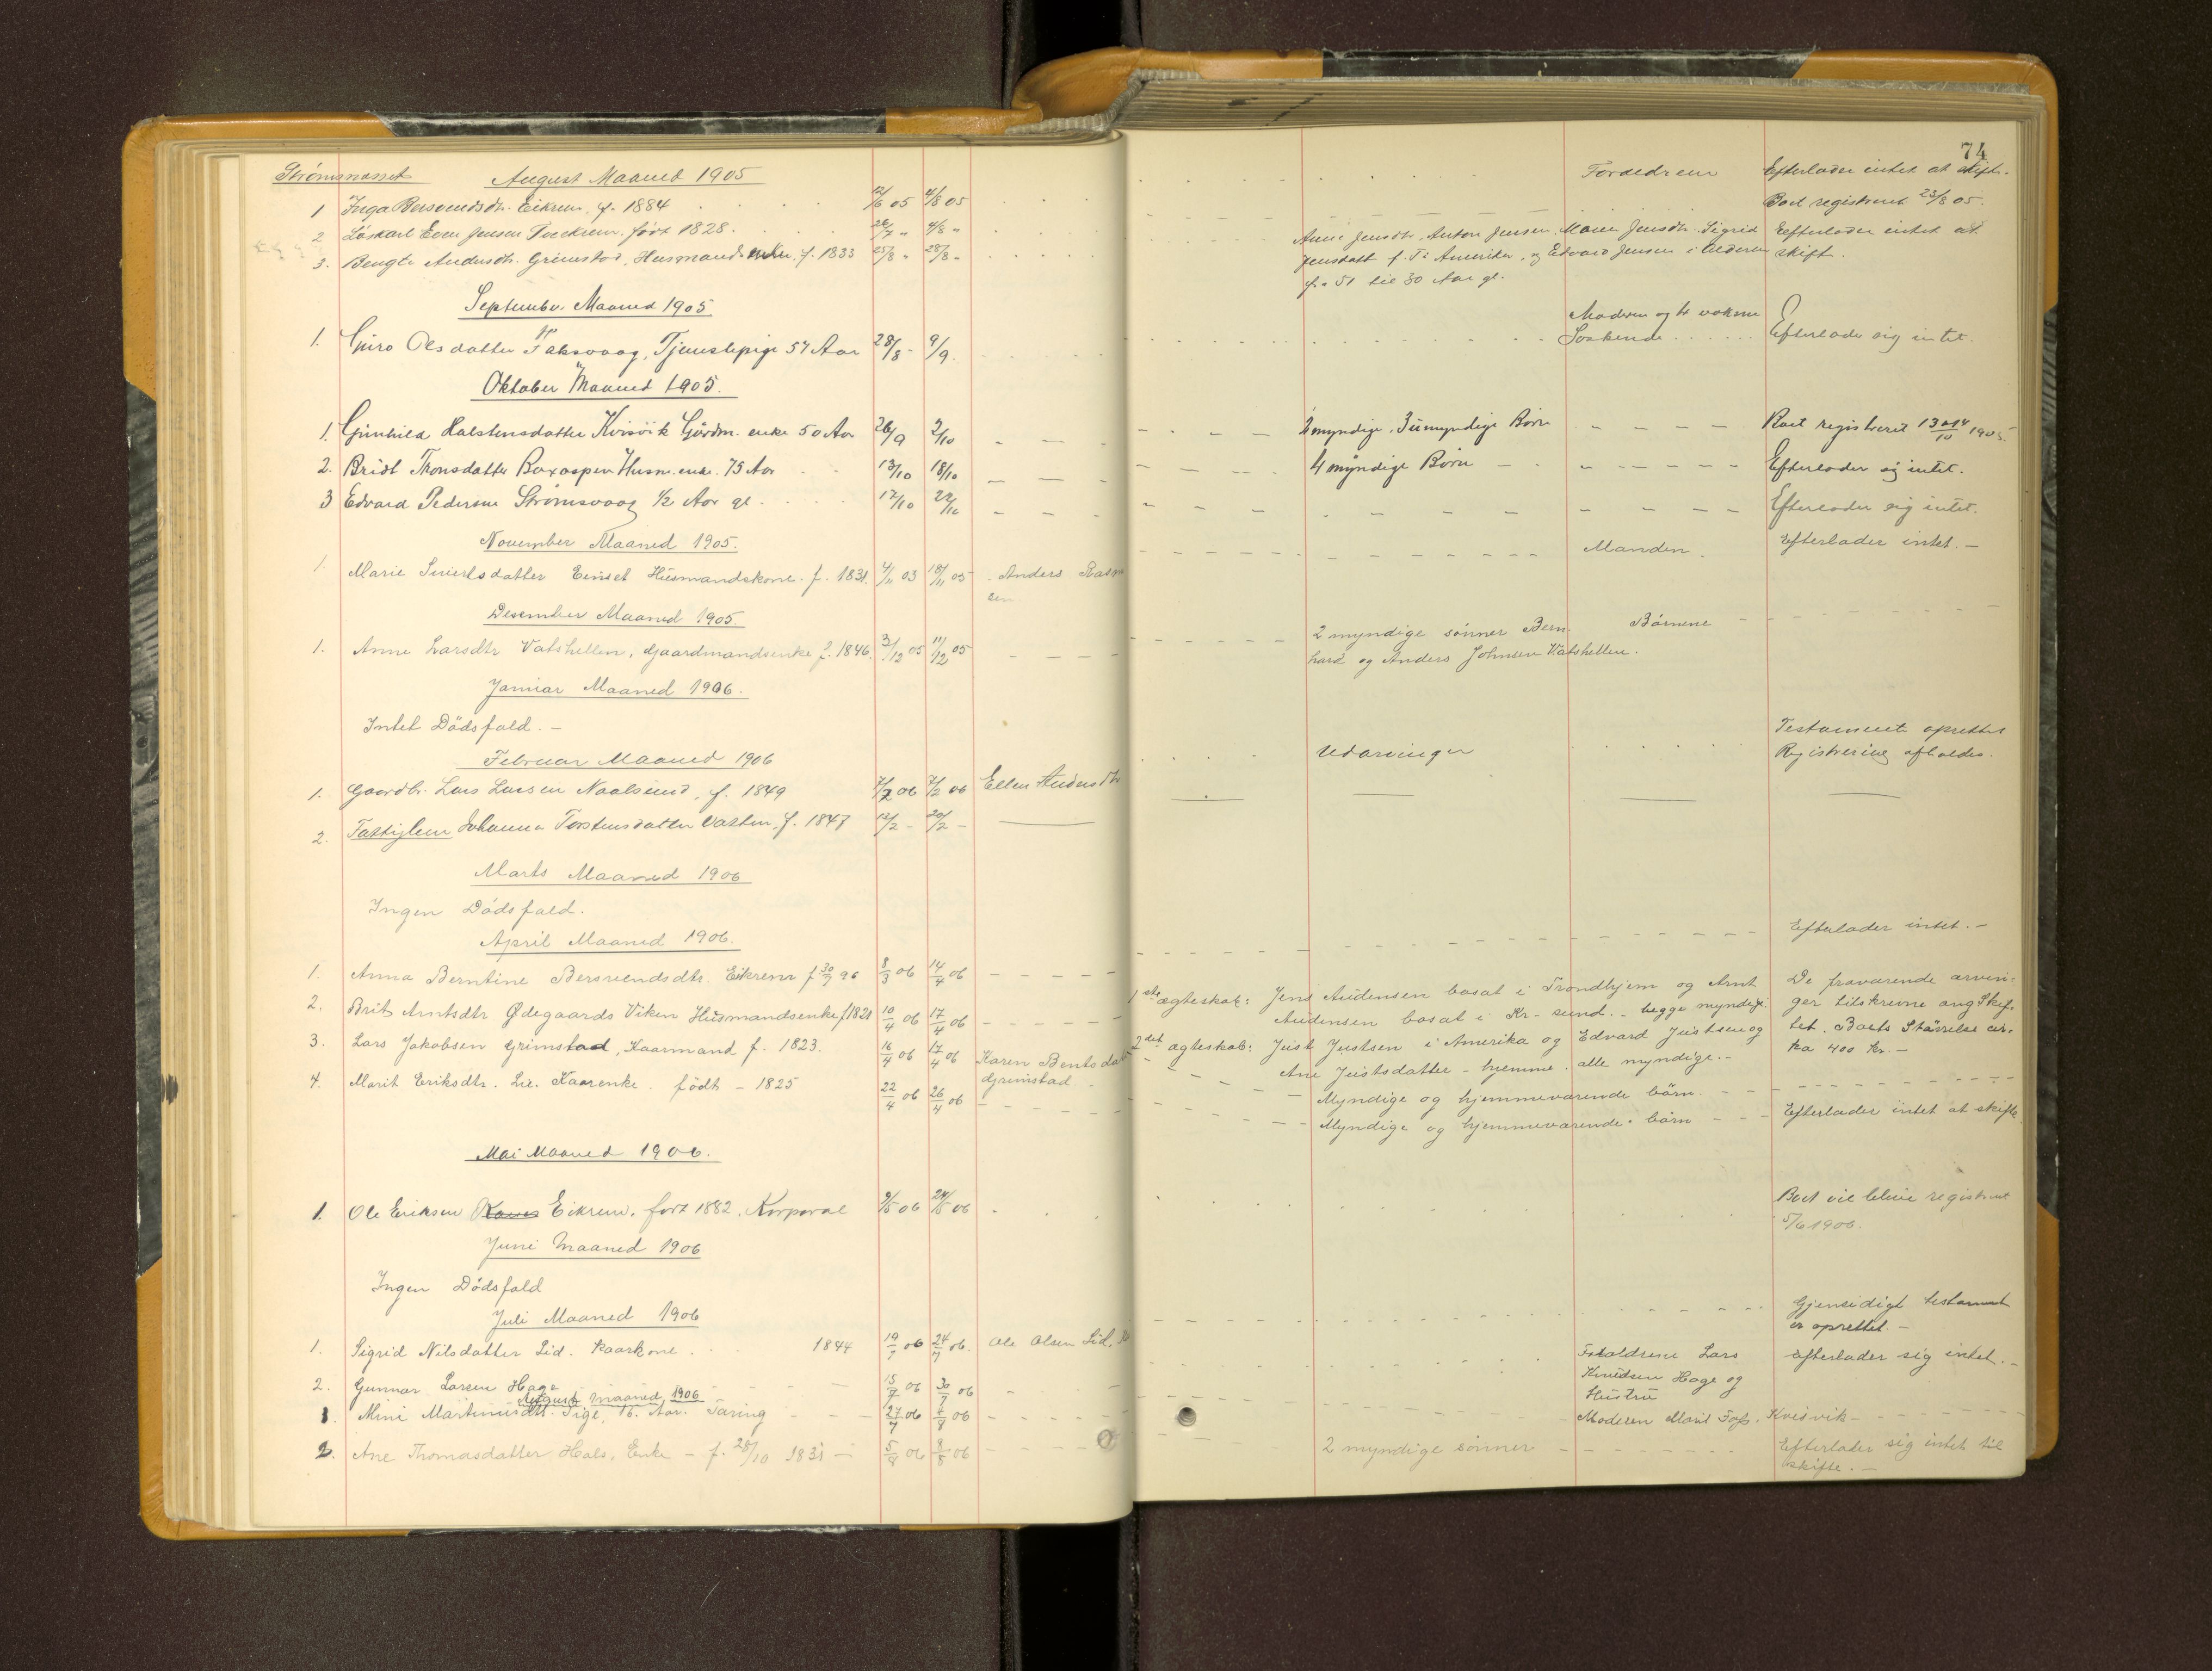 74
Strømsnæset August Maaned 1905
1 Inga Bersvendsdtr. Eikrem f. 1884 12/6 05 4/8 05 Forældrene Efterlader intet at skift.
2 Løskarl Even Jensen født 1828. 26/7 " 4/8 " Boet registreret 23/8 05.
3. Bengte Andersdtr. Grimstad, Husmandsenke f. 1833 25/8 " 28/8 " Anne Jensdtr, Anton Jensen, Maren Jensdtr. Sigrid Efterlader intet at
Jensdatt f. T. i Amerika, og Edvard Jensen i Alderen skift.
fra 51 til 30 Aar gl.
September Maaned 1905
Moderen og to voksne
1. Guro Olsdatter Taksvaag, Tjenestepige 54 Aar 28/8 - 9/9. Søskende Efterlader sig intet.
Oktober Maaned 1905.
1. Gunhild Halstensdatter Kvisvik Gårdm. enke 50 Aar 26/9 2/10 2 myndige, 3 umyndige Børn Boet registreret 13 og 14/10 1905.
2. Bridt Thronsdatter Boxaspen Husm. enke. 75 Aar 13/10 18/10 4 myndige Børn Efterlader sig intet.
3 Edvard Pedersen Strømsvaag 1/2 Aar gl. 17/10 22/10 Efterlader sig intet.
November Maaned 1905.
1. Marie Siverlsdatter Einset Husmandskone. f. 1831. 4/11 05 18/11 05 Anders Rasmu Manden. Efterlader intet. -
sen
Desember Maaned 1905.
1. Anne Larsdtr Vatshellen, Gaardmandsenke f. 1846. 3/12 05 11/12 05 2 myndige sønner Bern Børnene
hard og Anders Johnsen Vatshellen.
Januar Maaned 1906.
Intet Dödsfald. -
Februar Maaned 1906
Testament oprettet
1. Gaardbr. Lars Larsen Naalsund, f. 1849 7/2 06 7/2 06 Ellen Andersdtr Udarvinger Registrering afholdes.
2. Fattiglem Johanna Torstensdatter Vatten, f. 1847 12/2 - 20/2 -
Marts Maaned 1906
Ingen Dödsfald.
April Maaned 1906.
1. Anna Berntine Bersvendsdtr. Eikrem f 30/7 96 8/3 06 14/4 06 Efterlader intet. -
2. Brit Arntsdtr Ødegaards Viken Husmandsenke f 1821 10/4 06 17/4 06 1ste ægteskab: Jens Audensen bosat i Trondhjem og Arnt De fraværende arvin-
Audensen bosat i Kr-sund. - begge myndige. ger tilskrevne ang Skif-
2det ægteskab: Just Justsen i Amerika og Edvard Justsen og tet. Boets Størrelse cir-
Ane Justsdatter - hjemme. alle myndige. - ka 400 kr. -
3. Lars Jakobsen Grimstad, Kaarmand f. 1823. 16/4 06 17/4 06 Karen Bentsdat Myndige og hjemmeværende børn.
Grimstad
4. Marit Eriksdtr. Lie. Kaarenke. født - 1825 22/4 06 26/4 06 Myndige og hjemmeværende børn Efterlader intet at skifte
Mai Maaned 1906.
1. Ole Eriksen Eikrem. født 1882, Korporal 9/5 06 24/5 06 Boet vil blive registreret
5/6 1906.
Juni Maaned 1906
Ingen Dödsfald
Juli Maaned 1906
1. Sigrid Nilsdatter Lid. Kaarkone. 1844 19/7 06 24/7 06. Ole Olsen Lid, Gjensidigt testament
er oprettet. -
2. Gunnar Larsen Hage 15/7 06 30/7 06 Forældrene Lars efterlader sig intet. -
Knudsen Hage og
Hustru
August Maaned 1906
1. Mini Martinusdtr. Pige, 16. Aar. Taring 27/7 06 4/8 06 Moderen Marit Foss, Kvisvik -
2. Ane Thomasdatter Hals, Enke - f. 28/10 1831 - 5/8 06 8/8 06 2 myndige sönner Efterlader sig intet til
skifte. -